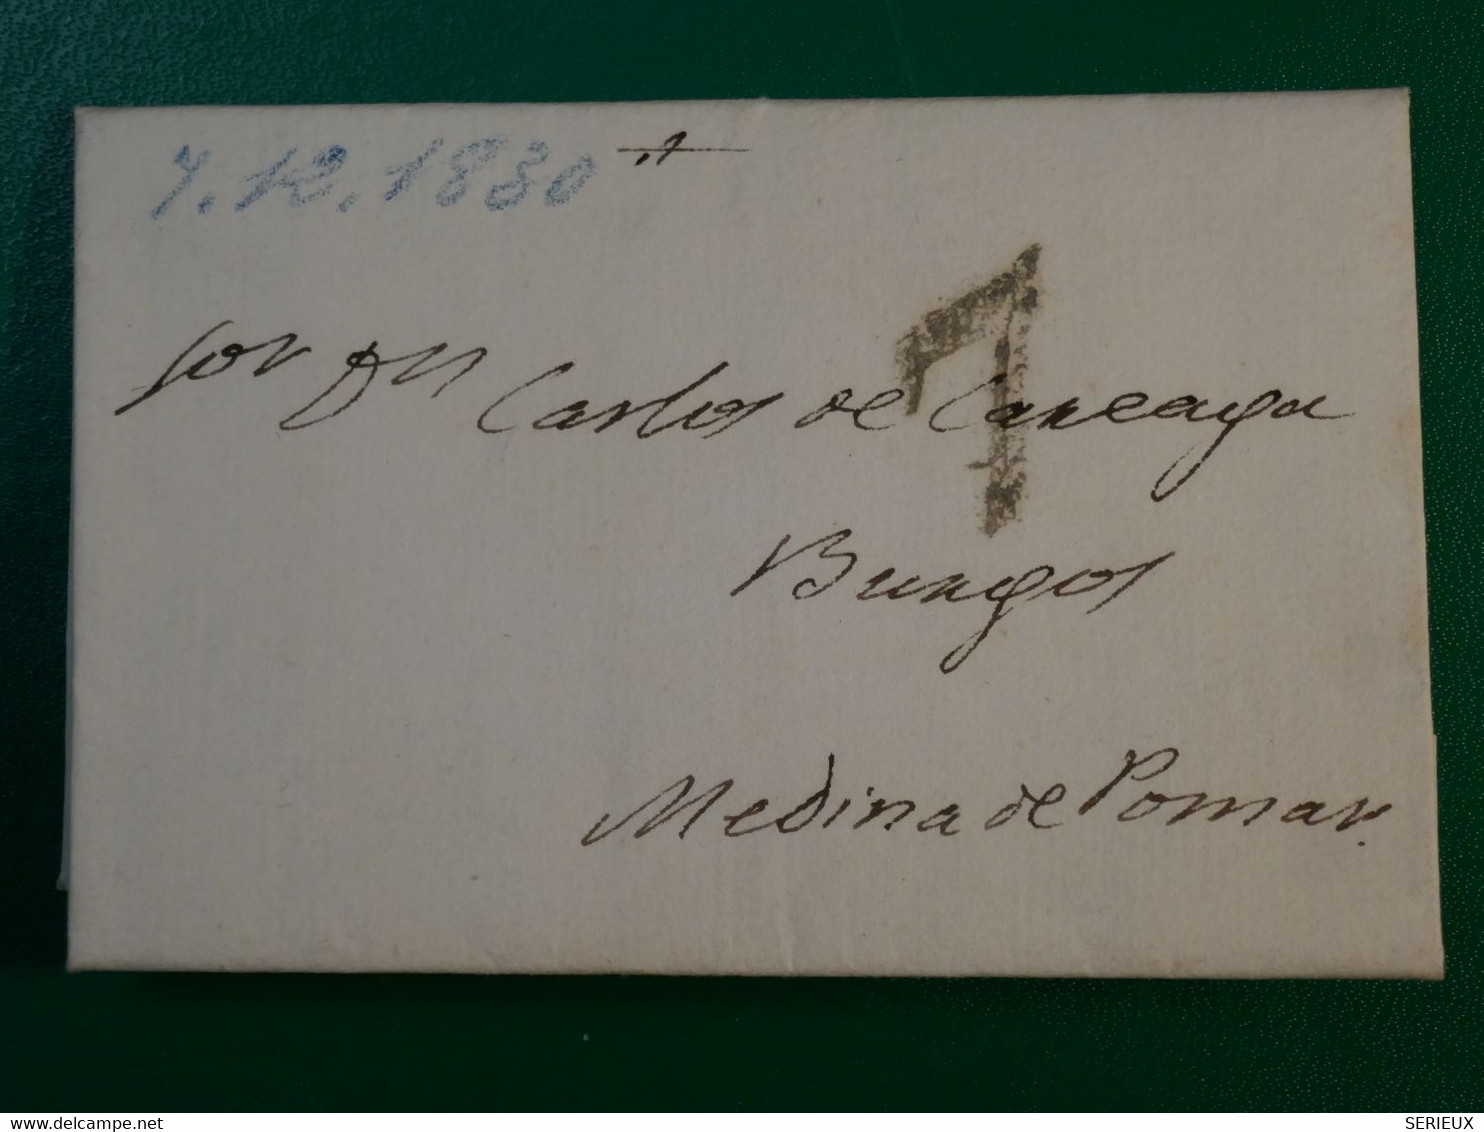 7.12.1830
7
Sor Dn Carlos de Careaga
Burgos
Medina de Pomar.
www.delcampe.net
SERIEUX